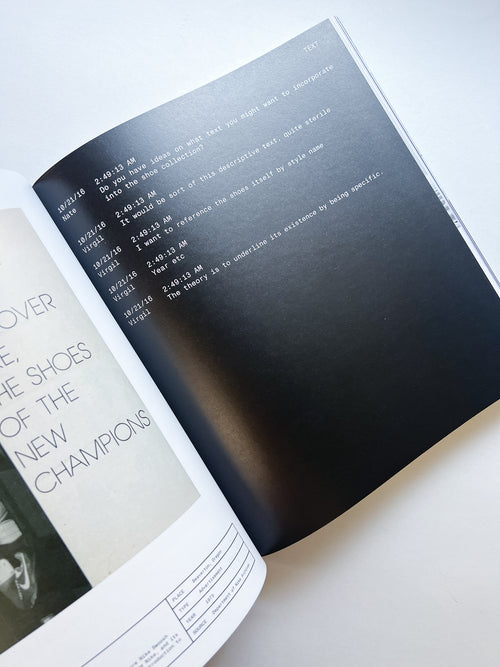 OVER
E,
HE SHOES
OF THE
NEW
CHAMPIONS
PLACE Beaverton, Oregon
TYPE Advertisement
YEAR 1979
SOURCE Department of Nike Archives
TEXT
10/21/16 2:49:13 AM
Nate Do you have ideas on what text you might want to incorporate
into the shoe collection?
10/21/16 2:49:13 AM
Virgil It would be sort of this descriptive text, quite sterile
10/21/16 2:49:13 AM
Virgil I want to reference the shoes itself by style name
10/21/16 2:49:13 AM
Virgil Year etc
10/21/16 2:49:13 AM
Virgil The theory is to underline its existence by being specific.